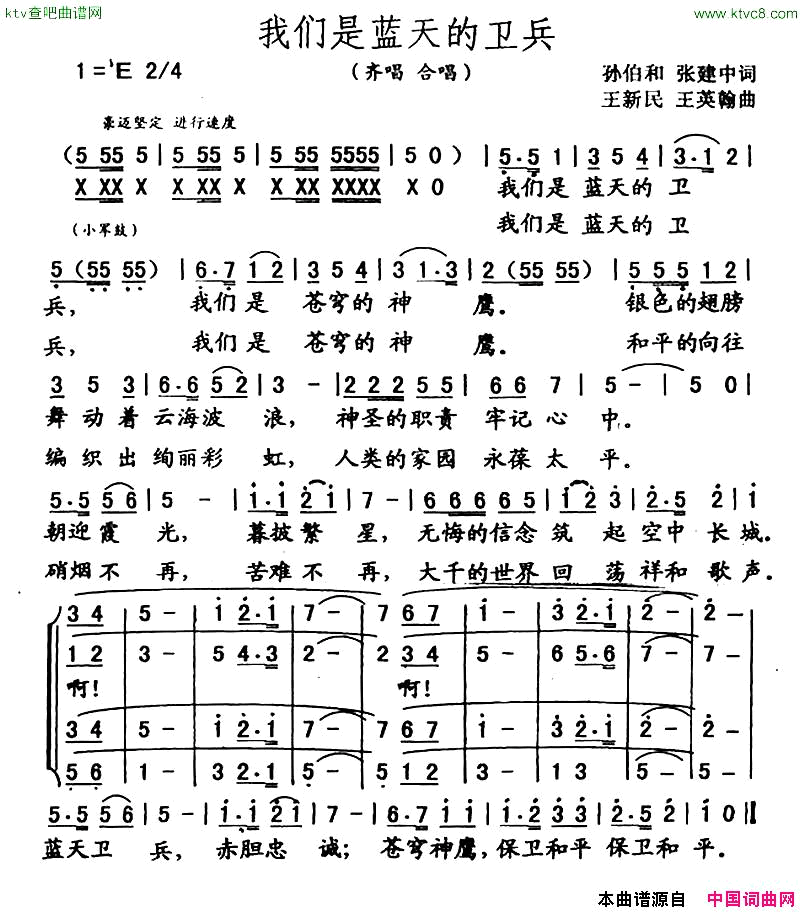 ktv查吧曲谱网 www.ktvc8.com
我们是蓝天的卫兵
1=♭E 2/4 （齐唱 合唱） 孙伯和 张建中词
王新民 王英翰曲
豪迈坚定 进行速度
（5 55 5 | 5 55 5 | 5 55 5555 | 5 0） | 5·5 1 | 3 5 4 | 3·1 2 |
X XX X X XX X X XX XXXX X 0 我们是 蓝天的 卫
（小军鼓） 我们是 蓝天的 卫
5 (55 55) | 6·7 1 2 | 3 5 4 | 3 1·3 | 2 (55 55) | 5 5 5 1 2 |
兵， 我们是 苍穹的 神 鹰。 银色的翅膀
兵， 我们是 苍穹的 神 鹰。 和平的向往
3 5 3 | 6·6 5 2 | 3 - | 2 2 2 5 5 | 6 6 7 | 5 - | 5 0 |
舞 动 着 云海波 浪， 神圣的职责 牢记 心 中。
编 织 出 绚丽彩 虹， 人类的家园 永葆 太 平。
5·5 5 6 | 5 - | i·i 2 i | 7 - | 6 6 6 6 6 | i 2 3 | 2·5 2 | i
朝迎 霞 光， 暮披 繁 星， 无悔的信念 筑 起 空中 长 城。
硝烟 不 再， 苦难 不 再， 大千的世界 回 荡 祥和 歌 声。
3 4 | 5 - | i 2·i | 7 - | 7 6 7 | i - | 3 2·i | 2 - | 2 -
1 2 | 3 - | 5 4·3 | 2 - | 2 3 4 | 5 - | 6 5·6 | 7 - | 7 -
啊！ 啊！
3 4 | 5 - | i 2·i | 7 - | 7 6 7 | i - | i 2·i | 5 - | 5 -
5 6 | 1 - | 3 2·1 | 5 - | 5 1 2 | 3 - | 1 3 | 5 - | 5 -
5·5 5 6 | 5 - | i·i 2 i | 7 - | 6·7 i i | i i | 2·2 3 3 | 2·5 2 | i 0 ‖
蓝天 卫 兵， 赤胆 忠 诚； 苍穹神鹰，保卫 和平 保卫 和 平。
本曲谱源自 中国词曲网